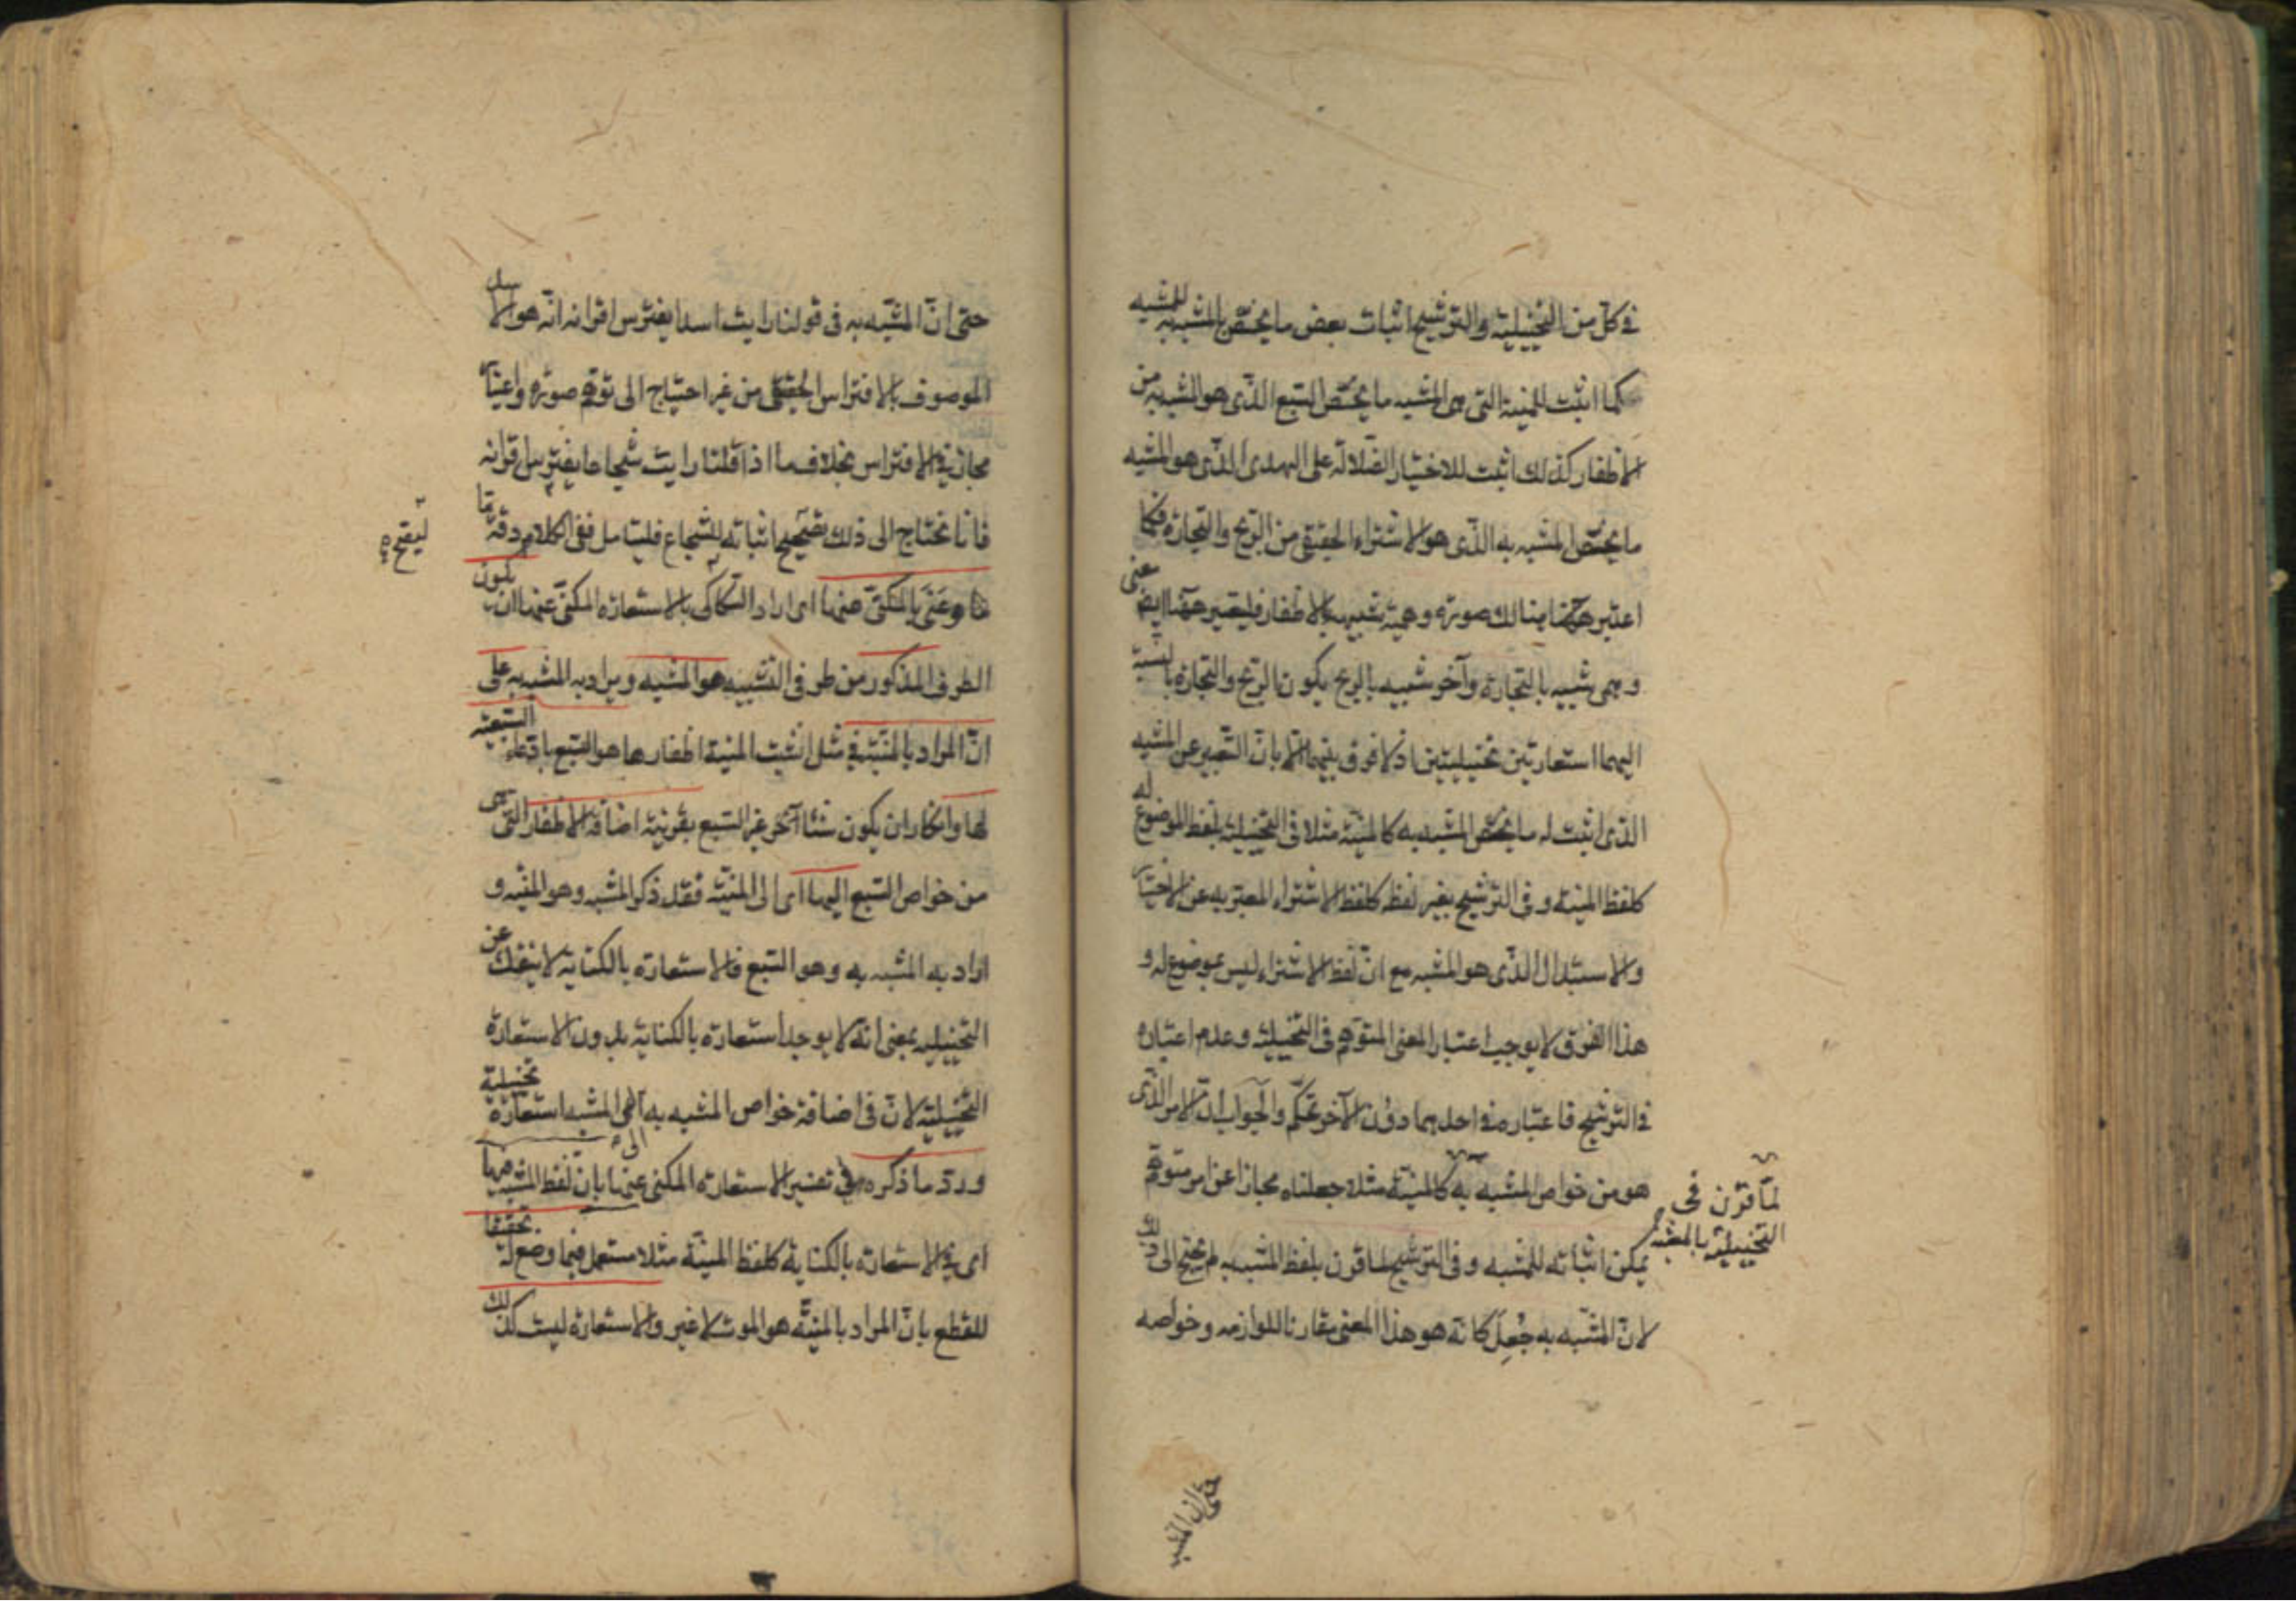 في كل من التخييلية والترشيح اثبات بعض ما يختص المشبه به للمشبه
كما اثبت للمنية التى هى المشبه ما يختص السبع الذى هو المشبه به من
الاظفار كذلك اثبت للاختيار الضلالة على الهدى الذى هو المشبه
ما يختص المشبه به الذى هو الاشتراء الحقيقى من الربح والتجارة فكما
اعتبر هنالك صورة وهمية شبيهة بالاظفار فليعتبر ههنا ايضا معنى
وهمى شبيه بالتجارة وآخر شبيه بالربح يكون الربح والتجارة بالنسبة
اليهما استعارتين تخييليتين اذ لا فرق بينهما الا بان التعبير عن المشبه
الذى اثبت له ما يختص المشبه به كالمنية مثلا فى التخييلية بلفظ الموضوع له
كلفظ المنية وفى الترشيح بغير لفظه كلفظ الاشتراء المعبر به عن الاختيار
والاستبدال الذى هو المشبه مع ان لفظ الاشتراء ليس بموضوع له و
هذا الفرق لا يوجب اعتبار المعنى المتوهم فى التخييلية وعدم اعتباره
فى الترشيح فاعتباره فى احدهما دون الآخر تحكم والجواب ان الامر الذى
هو من خواص المشبه به كالمنية مثلا جعلناه مجازا عن امر متوهم
لما قرن فى
التخييلية بالمشبه
يمكن اثباته للمشبه وفى الترشيح لما قرن بلفظ المشبه به لم يحتج الى ذلك
لان المشبه به جُعِلَ كانه هو هذا المعنى مقارنا للوازمه وخواصه
حتى ان المشبه
حتى ان المشبه به فى قولنا رايت اسدا يفترس اقرانه انه هو الاسد
الموصوف بالافتراس الحقيقى من غير احتياج الى توهم صورة واعتبار
مجاز فى الافتراس بخلاف ما اذا قلنا رايت شجاعا يفترس اقرانه
فانا نحتاج الى ذلك ليصح اثباته للشجاع فليتامل ففى الكلام دقة ما
وعَنَى بالمكنى عنها اى اراد السكاكى بالاستعارة المكنى عنها ان يكون
الطرف المذكور من طرفى التشبيه هو المشبه ويراد به المشبه به على
ان المراد بالمنية فى مثل انشبت المنية اظفارها هو السبع بادعاء السبعية
لها وانكار ان يكون شيئا آخر غير السبع بقرينة اضافة الاظفار التى هى
من خواص السبع اليها اى الى المنية فقد ذكر المشبه وهو المنية و
اراد به المشبه به وهو السبع فالاستعارة بالكناية لا ينفك عن
التخييلية بمعنى انه لا يوجد استعارة بالكناية بدون الاستعارة
التخييلية لان فى اضافة خواص المشبه به الى المشبه استعارة تخييلية
ورد ما ذكره فى تفسير الاستعارة المكنى عنها بان لفظ المشبه فيها
اى فى الاستعارة بالكناية كلفظ المنية مثلا مستعمل فيما وضع له تحقيقا
للقطع بان المراد بالمنية هو الموت لا غير والاستعارة ليست كذلك